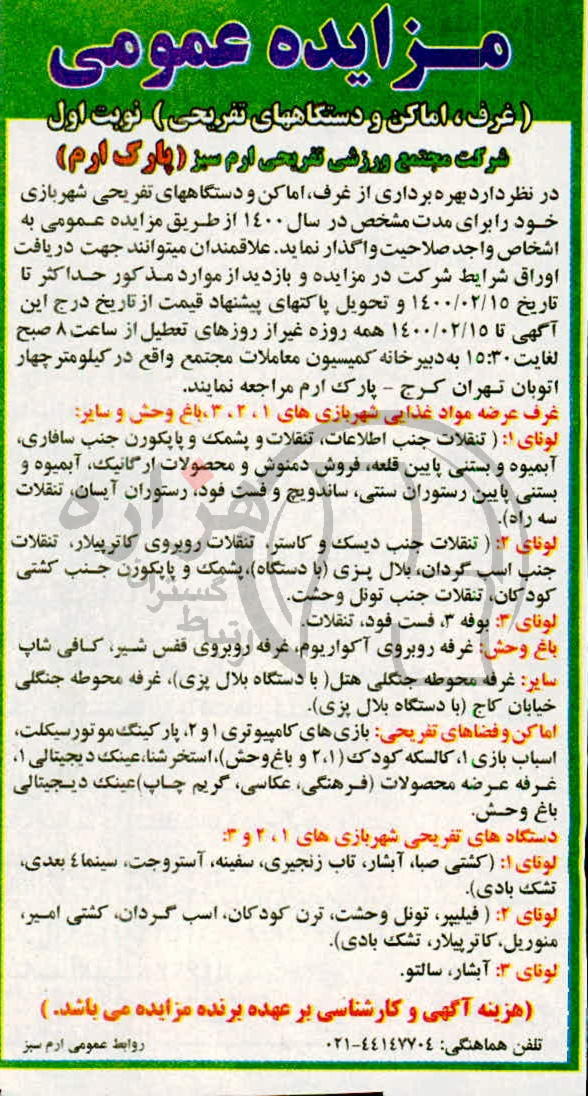 مزایده عمومی
( غرف، اماکن و دستگاههای تفریحی ) نوبت اول
شرکت مجتمع ورزشی تفریحی ارم سبز (پارک ارم)
در نظر دارد بهره برداری از غرف، اماکن و دستگاههای تفریحی شهربازی
خود را برای مدت مشخص در سال ۱۴۰۰ از طریق مزایده عمومی به
اشخاص واجد صلاحیت واگذار نماید. علاقمندان میتوانند جهت دریافت
اوراق شرایط شرکت در مزایده و بازدید از موارد مذکور حداکثر تا
تاریخ ۱۴۰۰/۰۲/۱۵ و تحویل پاکتهای پیشنهاد قیمت از تاریخ درج این
آگهی تا ۱۴۰۰/۰۲/۱۵ همه روزه غیر از روزهای تعطیل از ساعت ۸ صبح
لغایت ۱۵:۳۰ به دبیرخانه کمیسیون معاملات مجتمع واقع در کیلومتر چهار
اتوبان تهران کرج - پارک ارم مراجعه نمایند.
غرف عرضه مواد غذایی شهربازی های ۱ ، ۲ ، ۳ ،باغ وحش و سایر:
لونای ۱: ( تنقلات جنب اطلاعات، تنقلات و پشمک و پاپکورن جنب سافاری،
آبمیوه و بستنی پایین قلعه، فروش دمنوش و محصولات ارگانیک، آبمیوه و
بستنی پایین رستوران سنتی، ساندویچ و فست فود، رستوران آیسان، تنقلات
سه راه).
لونای ۲: ( تنقلات جنب دیسک و کاستر، تنقلات روبروی کاترپیلار، تنقلات
جنب اسب گردان، بلال پزی (با دستگاه)،پشمک و پاپکورن جنب کشتی
کودکان، تنقلات جنب تونل وحشت.
لونای ۳: بوفه ۳، فست فود، تنقلات.
باغ وحش: غرفه روبروی آکواریوم، غرفه روبروی قفس شیر، کافی شاپ
سایر: غرفه محوطه جنگلی هتل( با دستگاه بلال پزی)، غرفه محوطه جنگلی
خیابان کاج (با دستگاه بلال پزی).
اماکن و فضاهای تفریحی: بازی های کامپیوتری ۱ و ۲، پارکینگ موتورسیکلت،
اسباب بازی ۱، کالسکه کودک (۲،۱ و باغ وحش)، استخر شنا، عینک دیجیتالی ۱،
غرفه عرضه محصولات (فرهنگی، عکاسی، گریم چاپ)عینک دیجیتالی
باغ وحش.
دستگاه های تفریحی شهربازی های ۱ ، ۲ و ۳:
لونای ۱: (کشتی صبا، آبشار، تاب زنجیری، سفینه، آستروجت، سینما ٤ بعدی،
تشک بادی).
لونای ۲: ( فیلیپر، تونل وحشت، ترن کودکان، اسب گردان، کشتی امیر،
منوریل،کاترپیلار، تشک بادی).
لونای ۳: آبشار، سالتو.
(هزینه آگهی و کارشناسی بر عهده برنده مزایده می باشد. )
تلفن هماهنگی: ۴۴۱۴۷۷۰۴-۰۲۱ روابط عمومی ارم سبز
هزاره
گستران
ارتباط